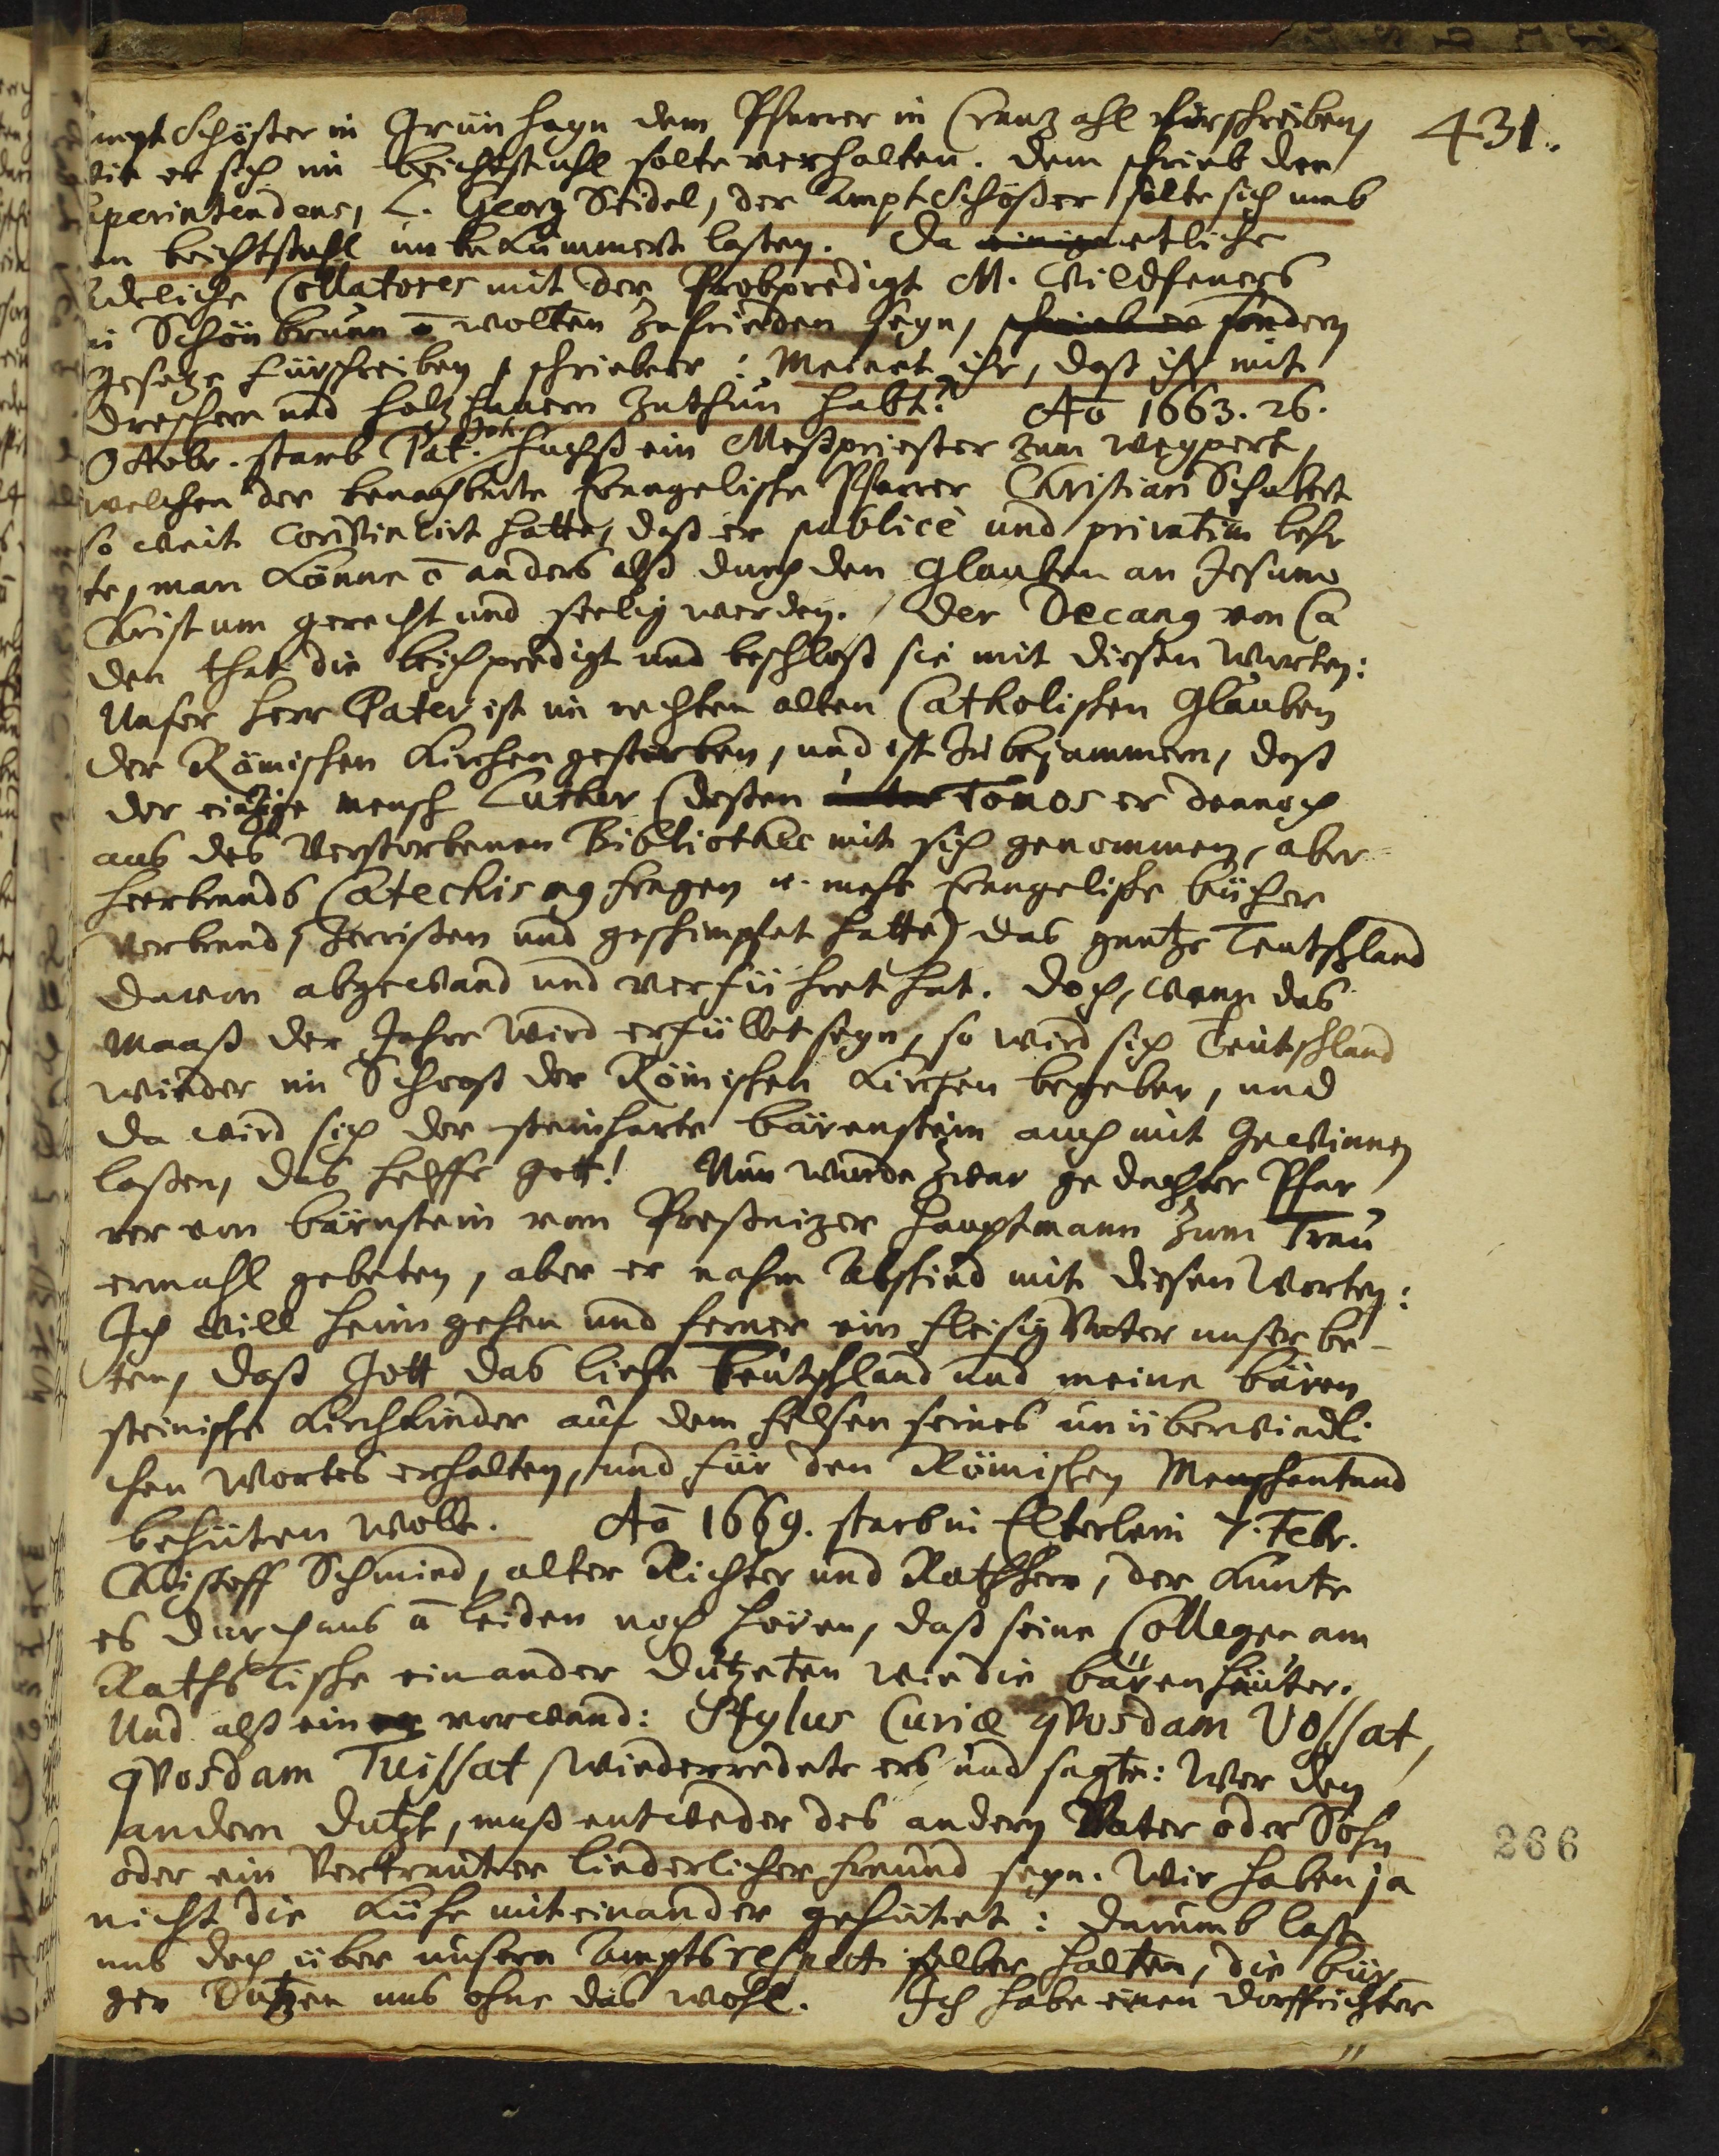 431.
ampt Schößer in Grünhayn dem Pfarrer in Cranzahl fürschreiben,
wie er sich im beichtstuhl solte verhalten. dem schrieb der
uperintendens, L. Georg Seidel, der Ampt Schößer solte sich umb
en beichtstuhl unbekümmert laßen. Da einige etliche
Adeliche Collatores mit der Probpredigt M. Wildfeuers
in Schönbrunn ō wolten zufrieden seyn, schrieb er sondern
gesetze fürschreiben, schrieb er: Meinet ihr, daß ihr mit
dreschern und holzhauern zuthun habt? Aō 1663. 26.
Octobr. starb Pat. Joh. Fuchß ein Meßpriester zum Weypert,
welchen der benachbarte Evangelische Pfarrer Christian Schubert
so weit convincirt hatte, daß er publicè und privatim lehr
te, man könne ō anders alß durch den glauben an Jesum
Christum gerecht und seelig werden. Der Decang von Ca
den that die leichpredigt und beschloß sie mit diesen Worten:
Unser Herr Pater ist im rechten alten Catholischen Glauben
der Römischen Kirchen gestorben, und ist zu bejammern, daß
der eintzige mensch Luther (deßen unter Tomos er dennoch
aus des Verstorbenen Bibliothec mit sich genommen, aber
Heerbrands Catechis mg fragen u. mehr Evangelische bücher
verbrand, zerrißen und geschimpfet hatte) das gantze Teutschland
davon abgewand und verführet hat. Doch, wann das
Maaß der Jahre wird erfüllet seyn, so wird sich Teutschland
wieder im Schooß der Römischen Kirchen begeben, und
da wird sich der steinharte bärenstein auch mit gewinnen
laßen, das helffe gott! Nun wurde zwar gedachter Pfar
rer von bärnstein vom Preßnizer Hauptmann zum Trau
ermahl gebeten, aber er nahm Abschied mit diesen Worten:
Ich will heim gehen und ferner ein fleisig Vater unser be-
ten, daß Gott das liebe Teutschland und meine bären
steinische Kirchkinder auf dem felsen seines unüberwindli
chen Wortes erhalten, und für den Römischen Menschentand
behüten wolle. Aō 1669. starb in Elterlein 7. Febr.
Christoff Schmied, alter Richter und Rathsherr, der kunte
es durchaus ō leiden noch hören, daß seine Collegen am
Raths Tische einander dutzeten wie die bärenhäuter.
Und alß einer vorwand: Stylus Curiæ qvosdam Vossat,
qvosdam Tuissat, wiederredete ers und sagte: Wer den
andern dutzt, muß entweder des andern Vater oder Sohn
oder ein Vertrauter liederlicher freund seyn. Wir haben ja
nicht die Kühe miteinander gehütet: darumb last
uns doch über unsern Ampts respect selber halten, die bür
ger Dutzen uns ohne das wohl. Ich habe einen dorffrichter
266